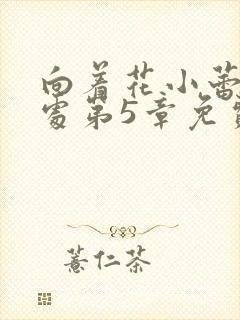 向着花小蕾
处第5章免费
薏仁茶